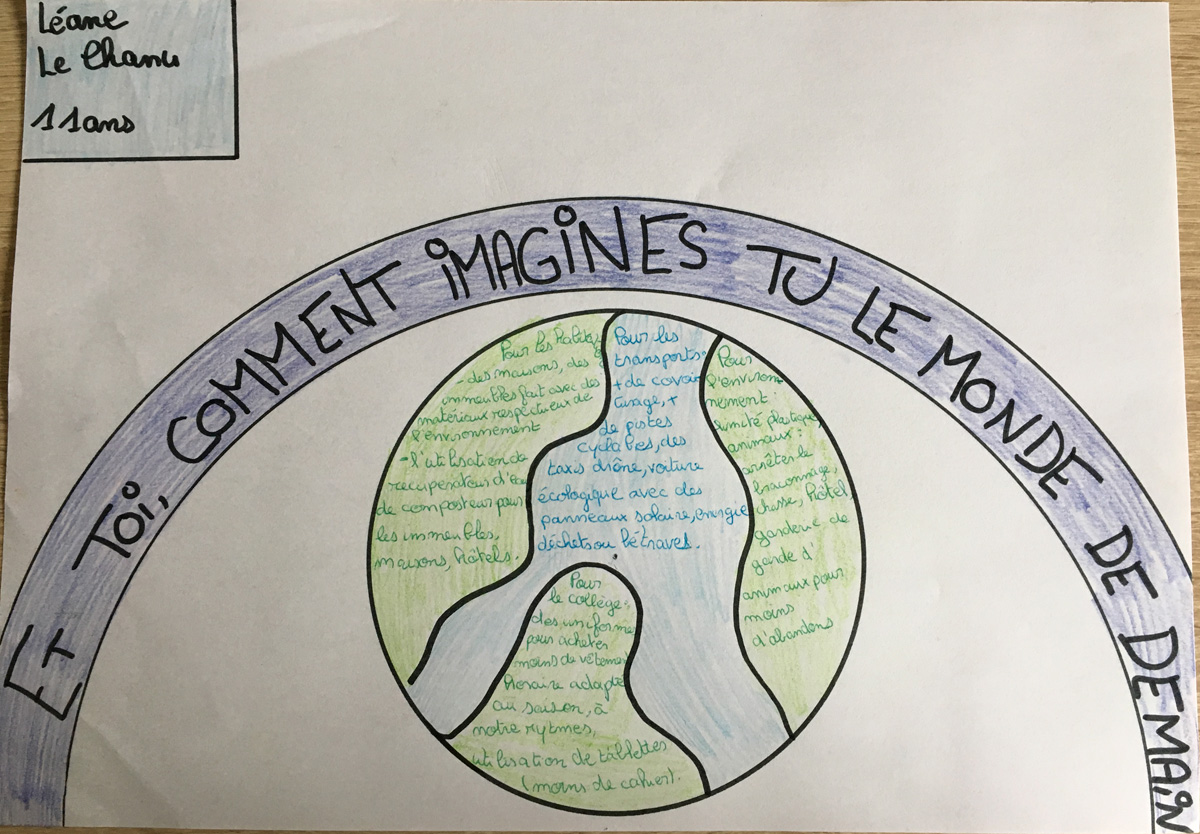 Léane
Le Chanu
11ans
ET TOI, COMMENT iMAGiNES TU LE MONDE DE DEMAiN
Pour les habitats
- des maisons, des
immeubles fait avec des
matériaux respectueux de
l'environnement
- l'utilisation de
récupérateur d'eau
de composteur pour
les immeubles,
maisons, hôtels.
Pour les
transports:
+ de covoi-
turage, +
de pistes
cyclables, des
taxis drône, voiture
écologique avec des
panneaux solaire, energie
déchets ou bétraves.
Pour
l'environ
nement:
limité plastique
animaux:
arrêter le
braconnage,
chasse, hôtel,
garderie de
garde d'
animaux pour
moins
d'abandons
Pour
le collège:
des uniforme
pour acheter
moins de vêtement
horaire adapté
au saison, à
notre rytmes,
utilisation de tablettes
(moins de cahier).